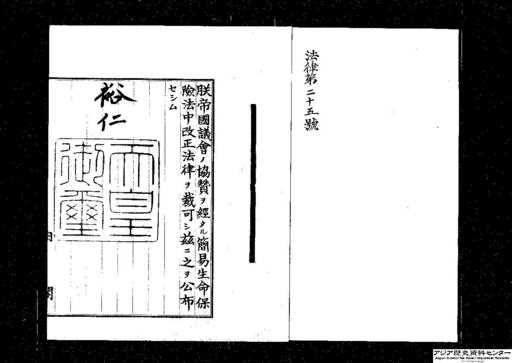 法律第二十五號
朕帝國議會ノ協贊ヲ經タル簡易生命保
險法中改正法律ヲ裁可シ茲ニ之ヲ公布
セシム
裕仁
天皇御璽
内閣
アジア歴史資料センター
Japan Center for Asian Historical Records